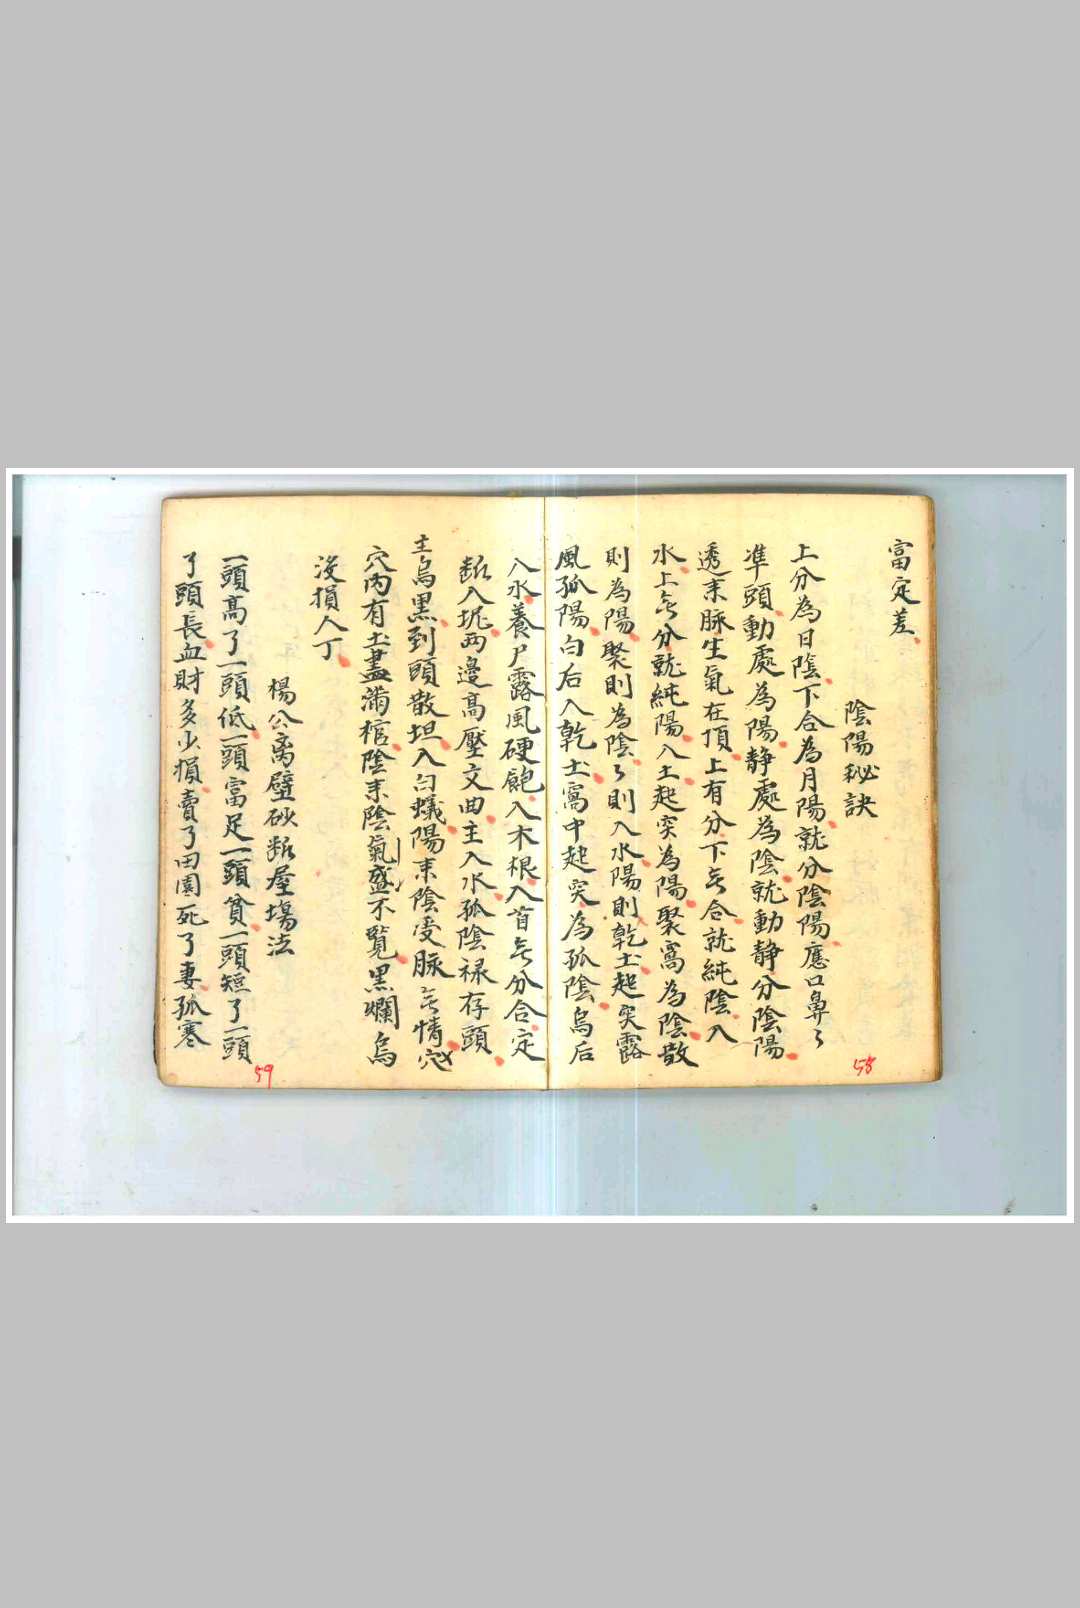 富定差
陰陽秘訣
上分為日陰下合為月陽就分陰陽應口鼻〻
準頭動處為陽静處為陰就動静分陰陽
透来脉生氣在頂上有分下旡合就純陰入
水上旡分就純陽入土起突為陽聚窩為陰散
則為陽聚則為陰〻則入水陽則乾土起突露
風孤陽白后入乾土窩中起突為孤陰烏后
58
入水養尸露風硬飽入木根入首旡分合定
断入坭两邉高壓文曲主入水孤陰禄存頭
主烏黑到頭散坦入白蟻陽来陰受脉旡情穴
穴内有土盡滿棺陰来陰氣盛不覧黑爛烏
没損人丁
楊公离壁砂断屋塲法
一頭高了一頭低一頭富足一頭貧一頭短了一頭
了頭長血財多少損賣了田園死了妻孤寒
59